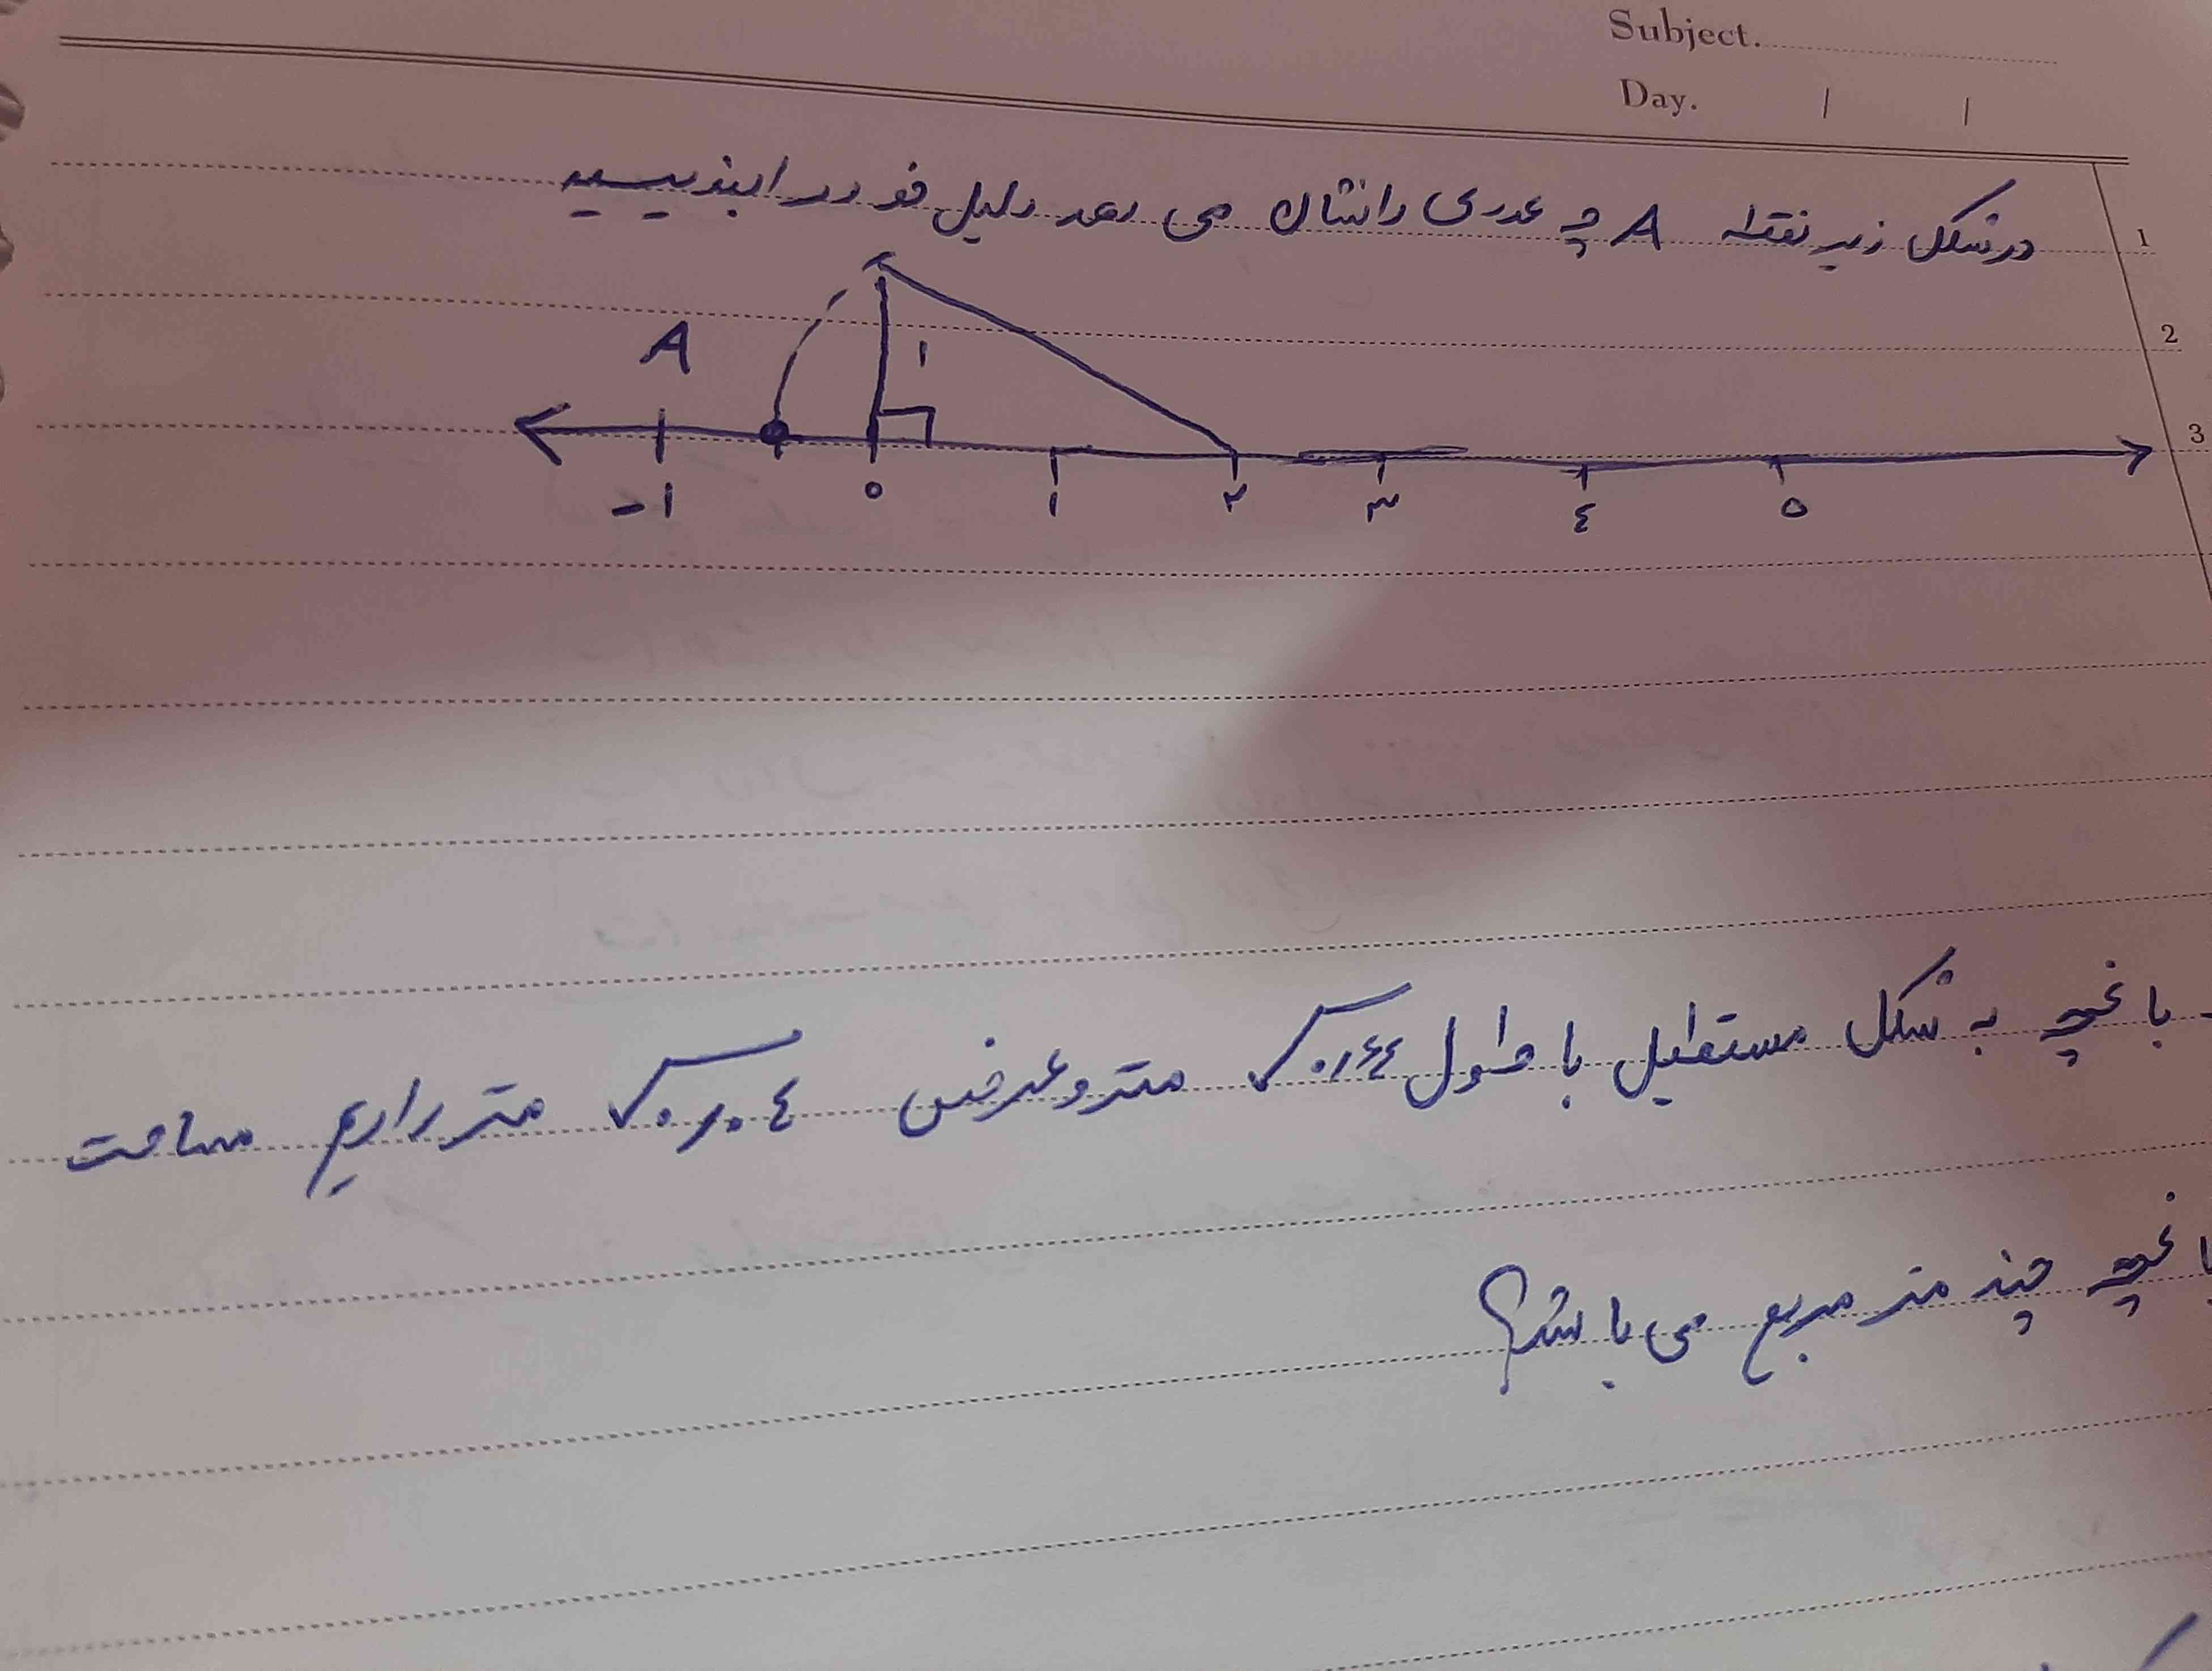 Subject.
Day.
در شکل زیر نقطه A چه عددی را نشان می دهد دلیل خود را بنویسید
1
2
3
A
۱
-۱ ۰ ۱ ۲ ۳ ٤ ۵
باغچه به شکل مستطیل با طول √۰/٤٤ متر و عرض √۰/۰٤ متر داریم مساحت
باغچه چند متر مربع می باشد؟